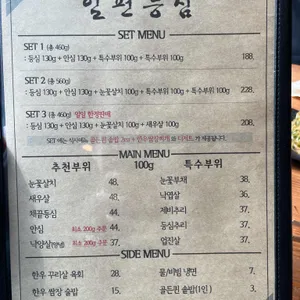 일편등심
SET MENU
SET 1 (총 460g)
: 등심 130g + 안심 130g + 특수부위 100g + 특수부위 100g 188.
SET 2 (총 560g)
: 등심 130g + 안심 130g + 눈꽃살치 100g + 특수부위 100g + 특수부위 100g 228.
SET 3 (총 460g) 평일 한정판매
: 등심 130g + 안심 130g + 눈꽃살치 100g + 새우살 100g 208.
SET 메뉴 + 가 제공됩니다.
MAIN MENU
추천부위 100g 특수부위
눈꽃살치 48. 눈꽃부채 38.
새우살 48. 낙엽살 37.
채끝등심 44. 제비추리 37.
안심 최소 200g 주문 44. 등심추리 37.
낙양살 최소 200g 주문 37. 업진살 37.
SIDE MENU
한우 꾸리살 육회 28. 물/비빔 냉면 7.
한우 쌈장 술밥 15. 골든퀸 솥밥(1인) 3.